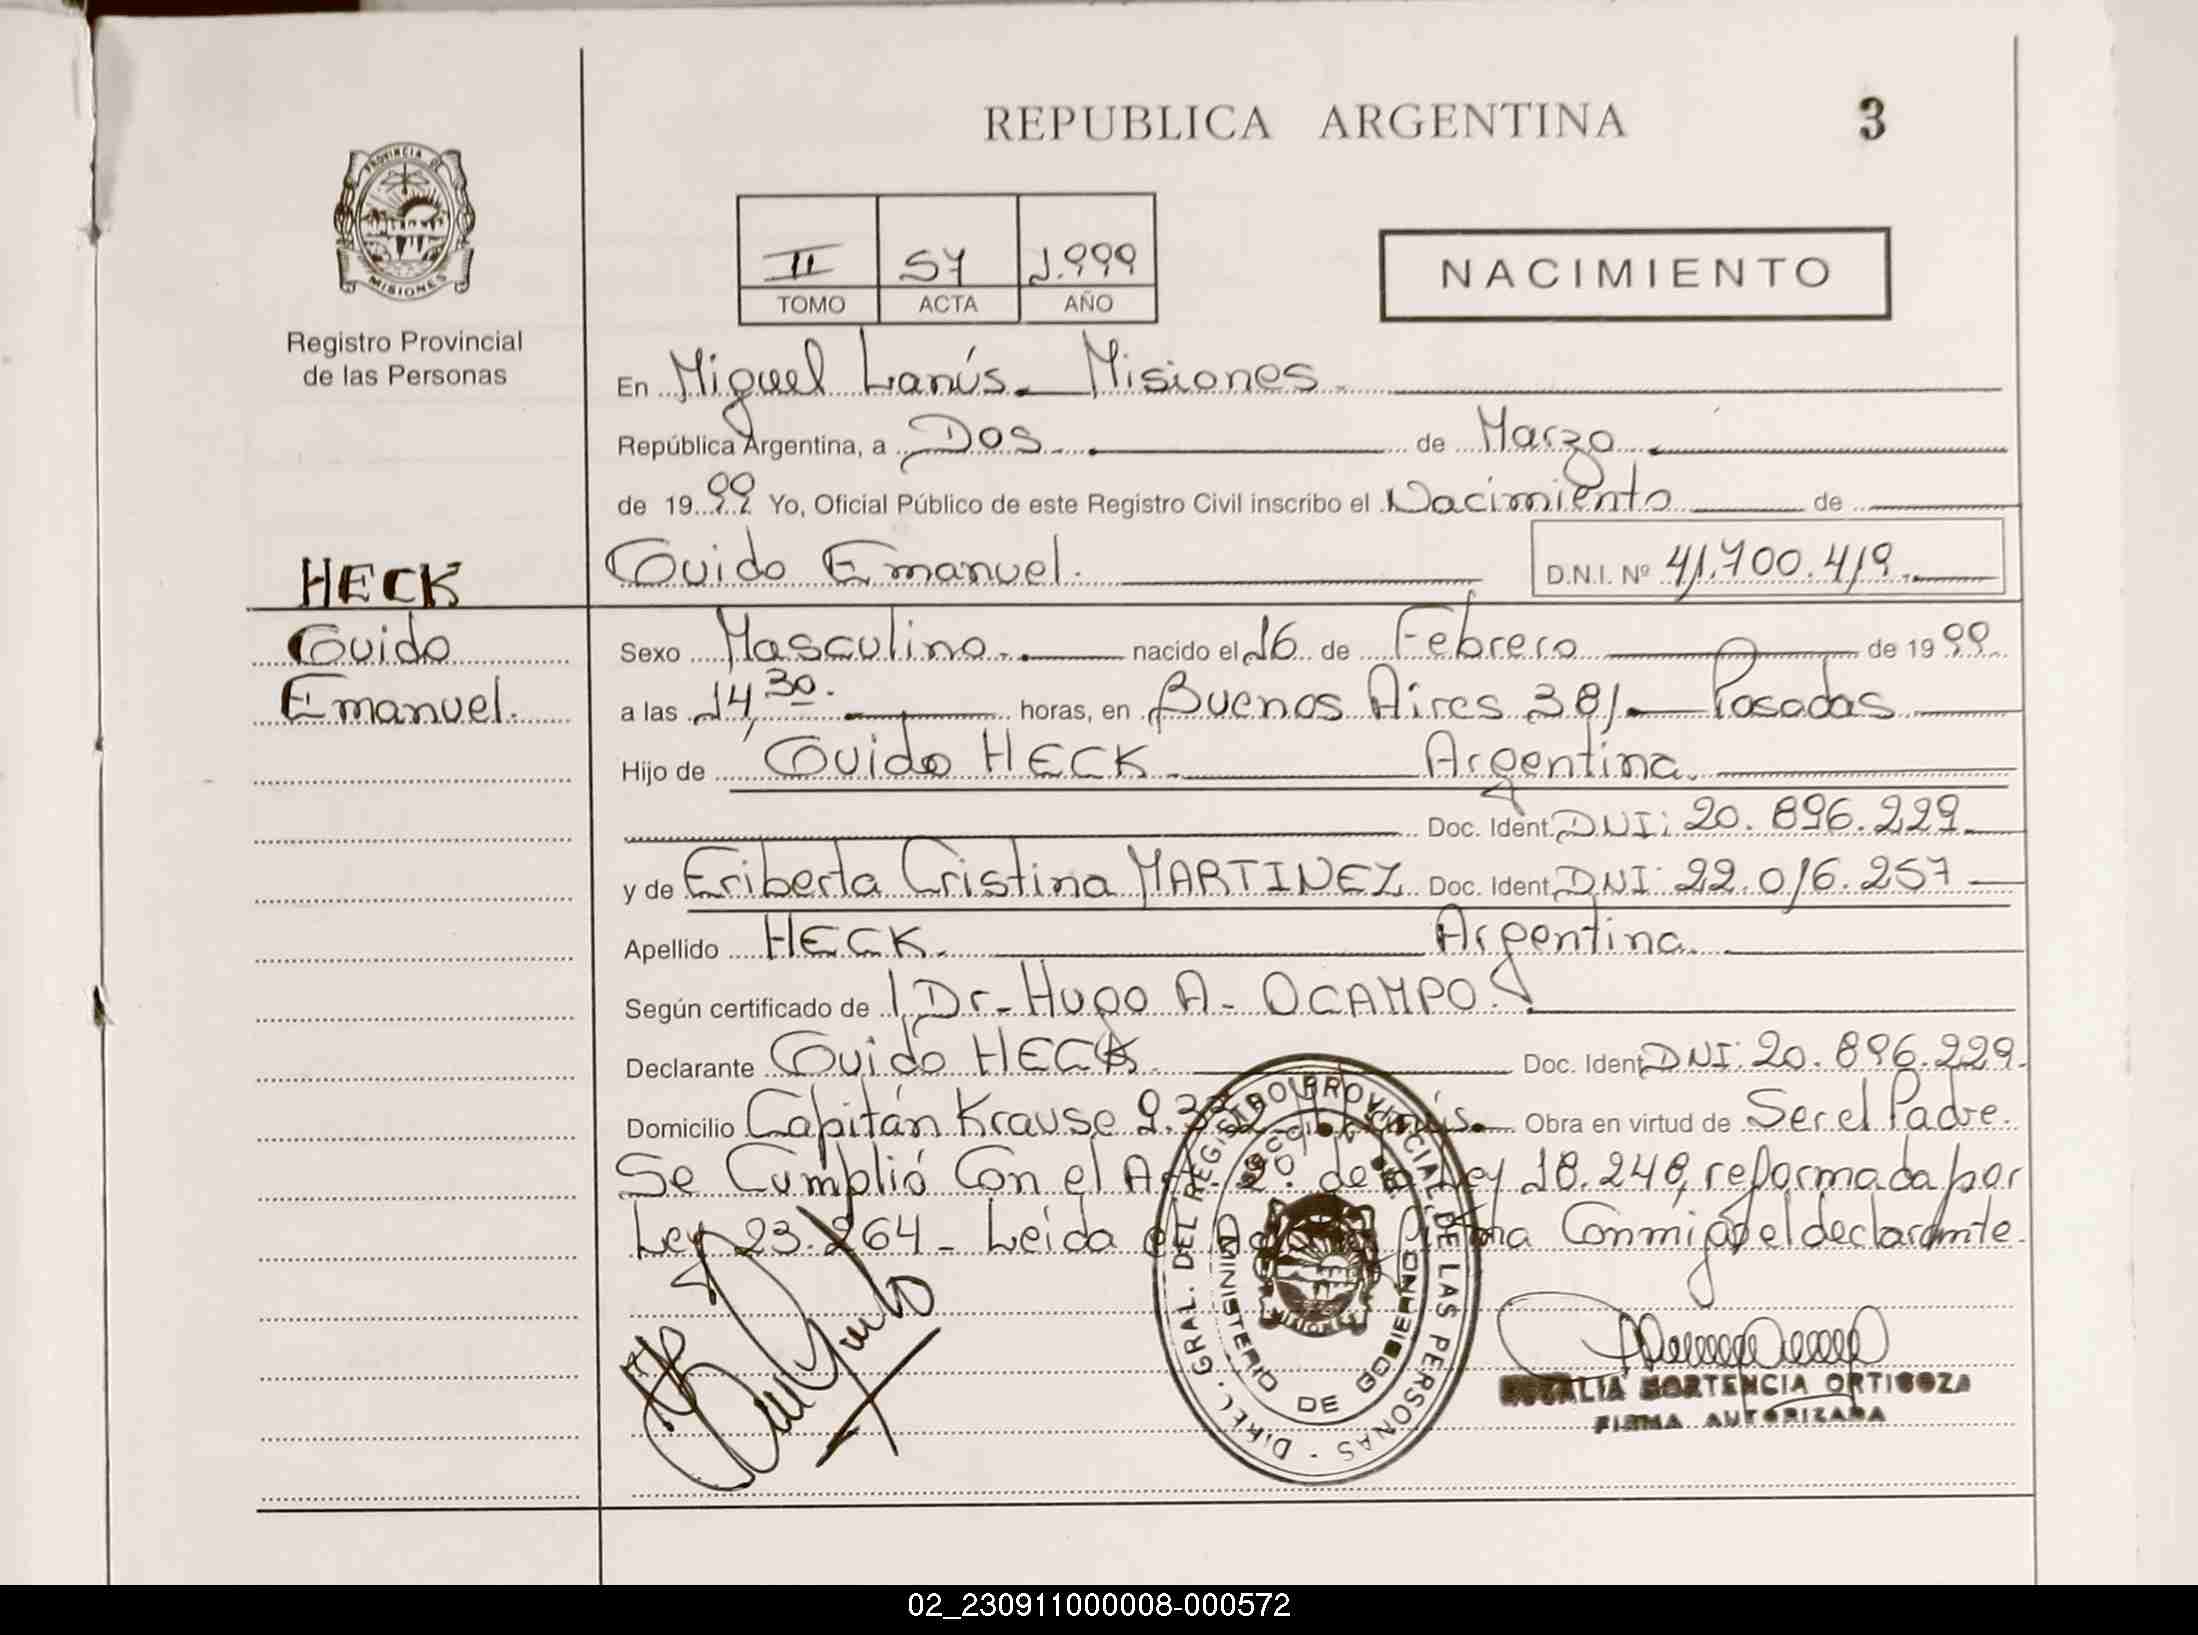 REPUBLICA ARGENTINA 3
PROVINCIA DE
MISIONES
Registro Provincial
de las Personas
II 57 1.999
TOMO ACTA AÑO
NACIMIENTO
En Miguel Lanús. Misiones.
República Argentina, a Dos de Marzo
de 1999 Yo, Oficial Público de este Registro Civil inscribo el Nacimiento de
HECK
Guido Emanuel. D.N.I. Nº 41.700.419.
Guido
Emanuel.
Sexo Masculino. nacido el 16 de Febrero de 1999
a las 14,30. horas, en Buenos Aires 381. Posadas
Hijo de Guido HECK Argentina.
Doc. Ident. DNI: 20.896.229
y de Eriberta Cristina MARTINEZ Doc. Ident. DNI: 22.016.257
Apellido HECK. Argentina.
Según certificado de Dr. Hugo A. OCAMPO.
Declarante Guido HECK Doc. Ident. DNI: 20.896.229.
Domicilio Capitán Krause 2.332 Lanús. Obra en virtud de Ser el Padre.
Se Cumplió Con el Art. 2º. de la Ley 18.248, reformada por
Ley 23.264 - Leída el Acta Firma Conmigo el declarante.
DIREC. GRAL. DEL REGISTRO PROVINCIAL DE LAS PERSONAS
MINISTERIO DE GOBIERNO
MISIONES
ROZALIA HORTENCIA ORTIGOZA
FIRMA AUTORIZADA
02_230911000008-000572